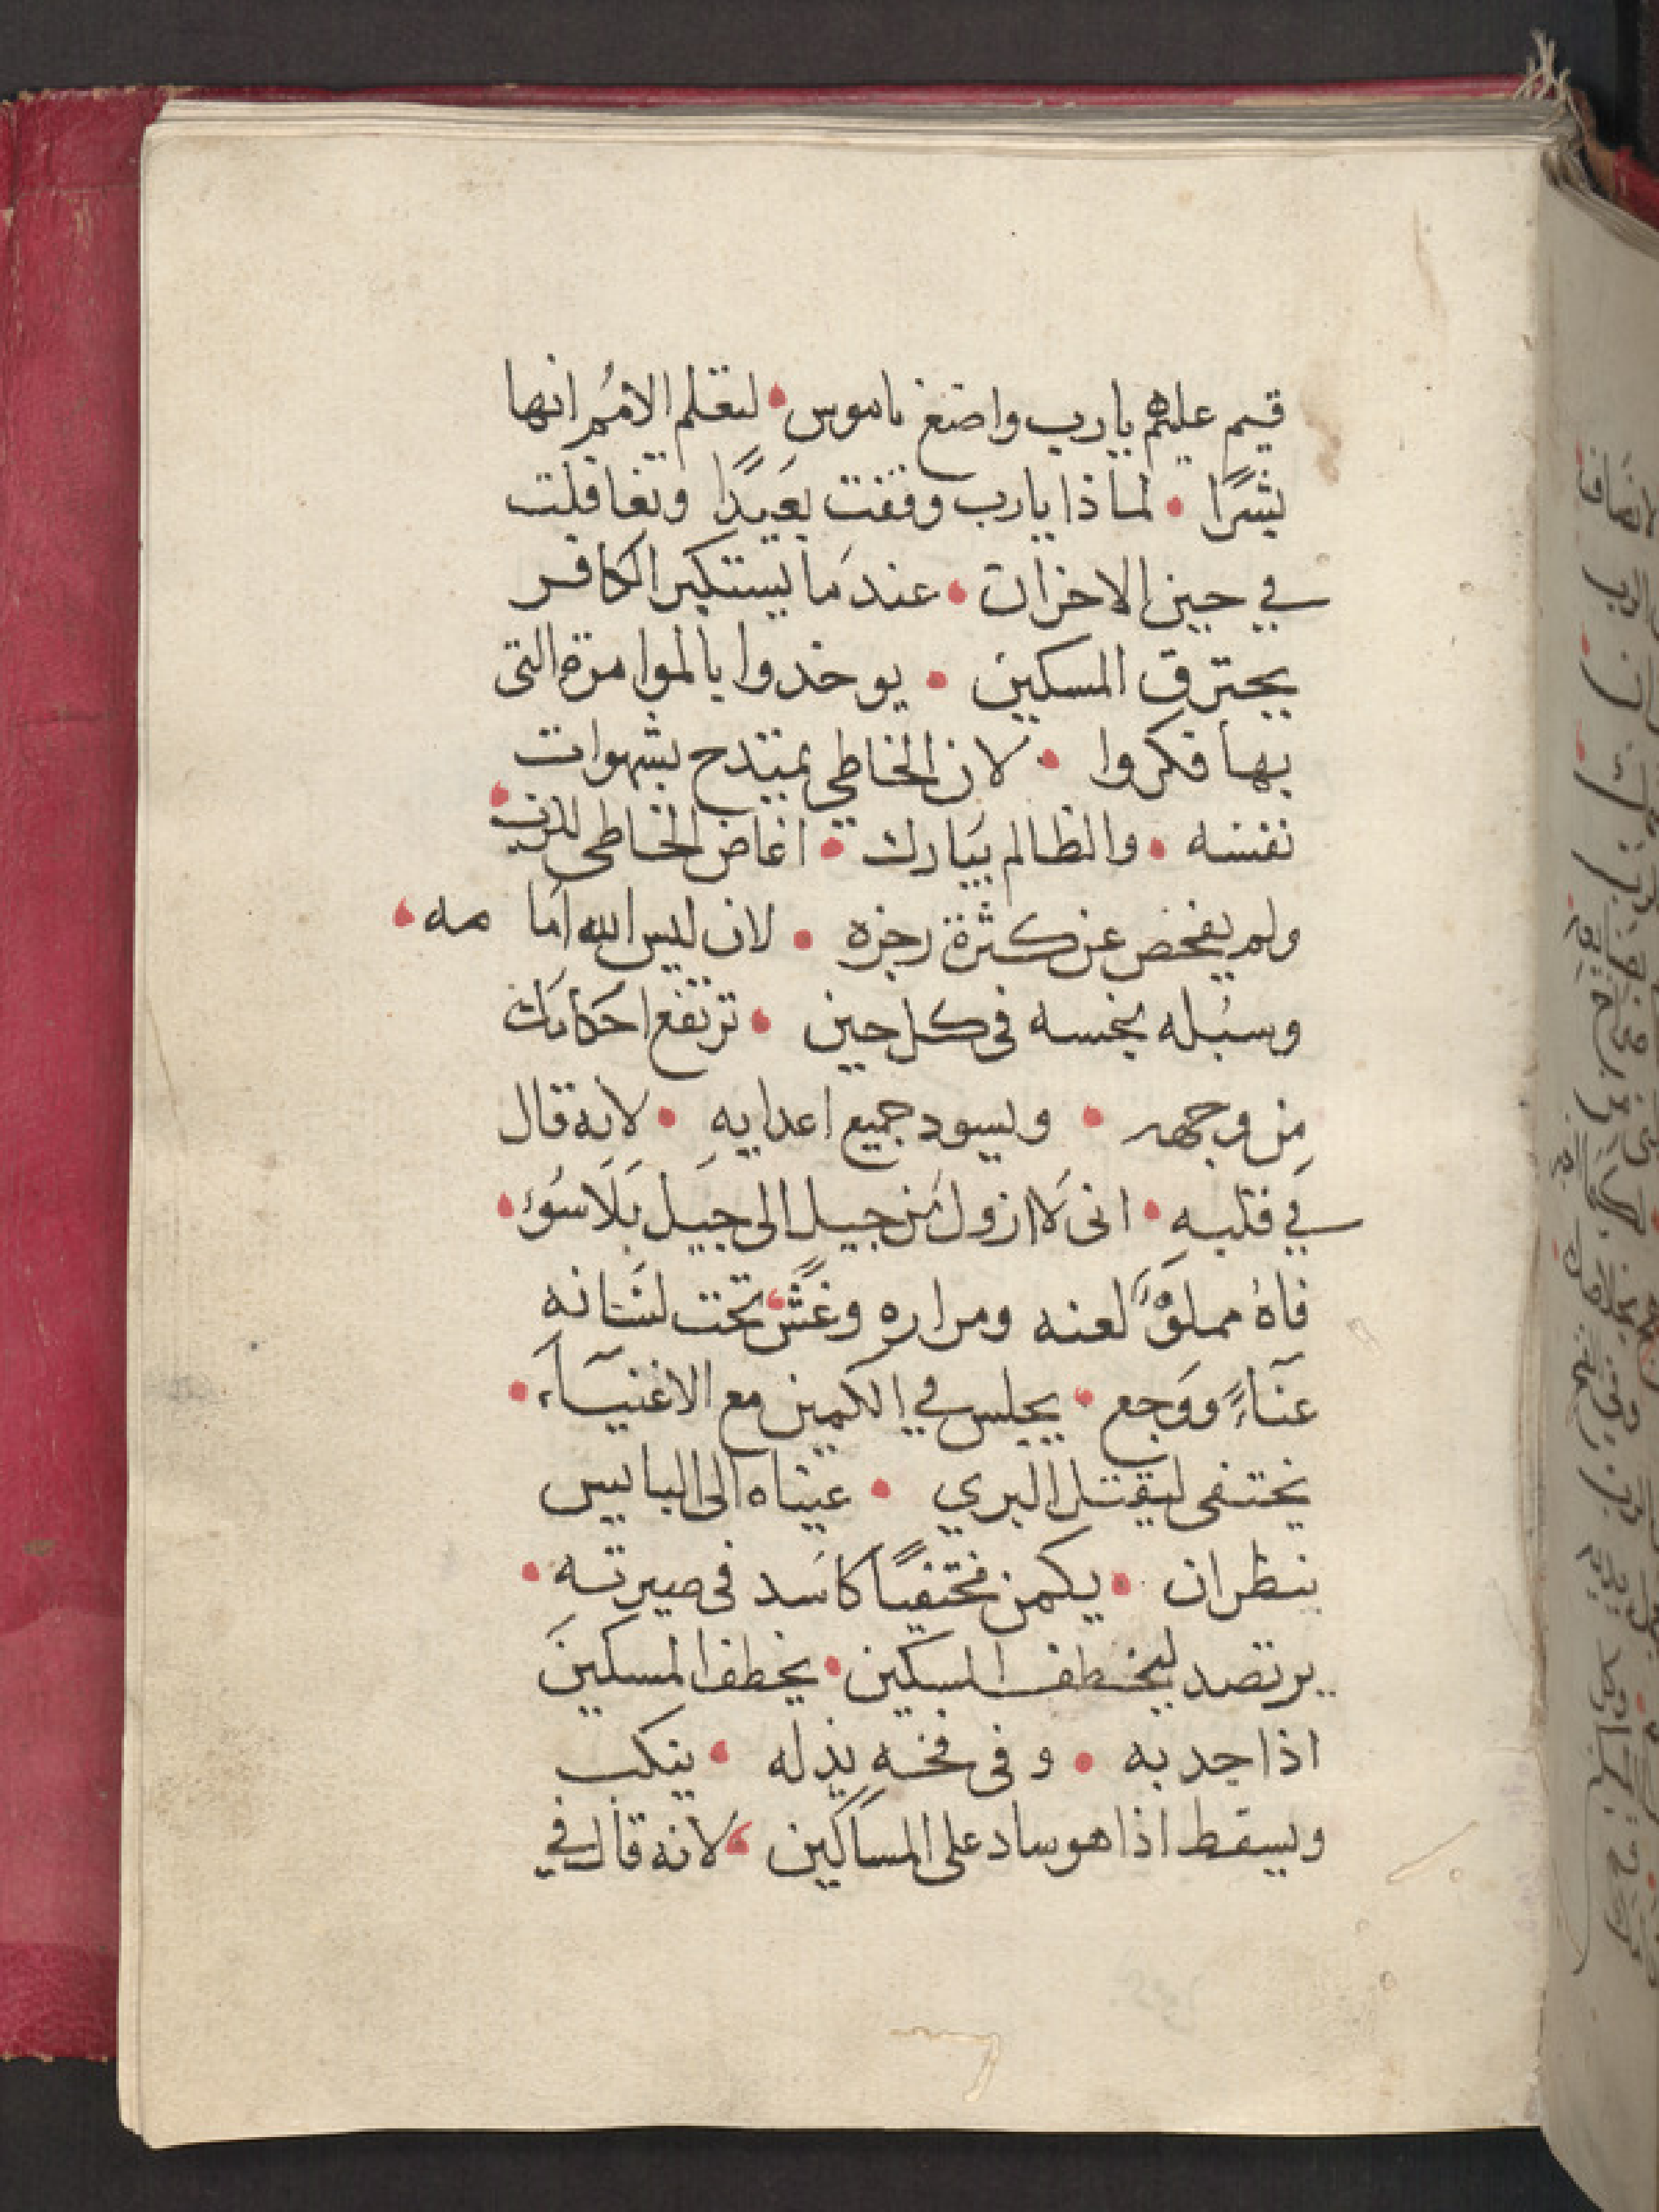 قيم عليهم يارب واضع ناموس • لتعلم الامُم انها
بشرًا • لماذا يارب وقفت بعَيدًا وتغافلت
في حين الاحزان • عندَ ما يستكبر الكافر
يحترق المسكين • يوخدوا بالموامرة التى
بها فكروا • لان الخاطي يمتدح بشهوات
نفسه • والظالم يبَارك • اغاض الخاطى للرب •
ولم يفحص عن كثرة رجزه • لان ليس الله اما مه •
وسبُله نجسه فى كل حين • ترتفع احكامك
مِن وجهه • ويسود جميع اعدايهِ • لانه قال
في قلبهِ • انى لَا ازول مَن جيل الى جيَل بَلَا سُوء •
فاهُ مملوًّ لعنه ومراره وغشًّ • تحت لسَانه
عنَاءً ووَجع • يجلس في الكمين مع الاغنيَآء •
يختفى ليقتل البري • عيناه الى البايس
ينظران • يكمن مختفيًا كاسَد فى صيرتهِ •
يرتصد ليخطف المسكين • يخطف المسكينَ
اذا جدبه • وفى فخهِ يذله • ينكب
ويسقط اذا هو ساد على المساكين • لانه قال في